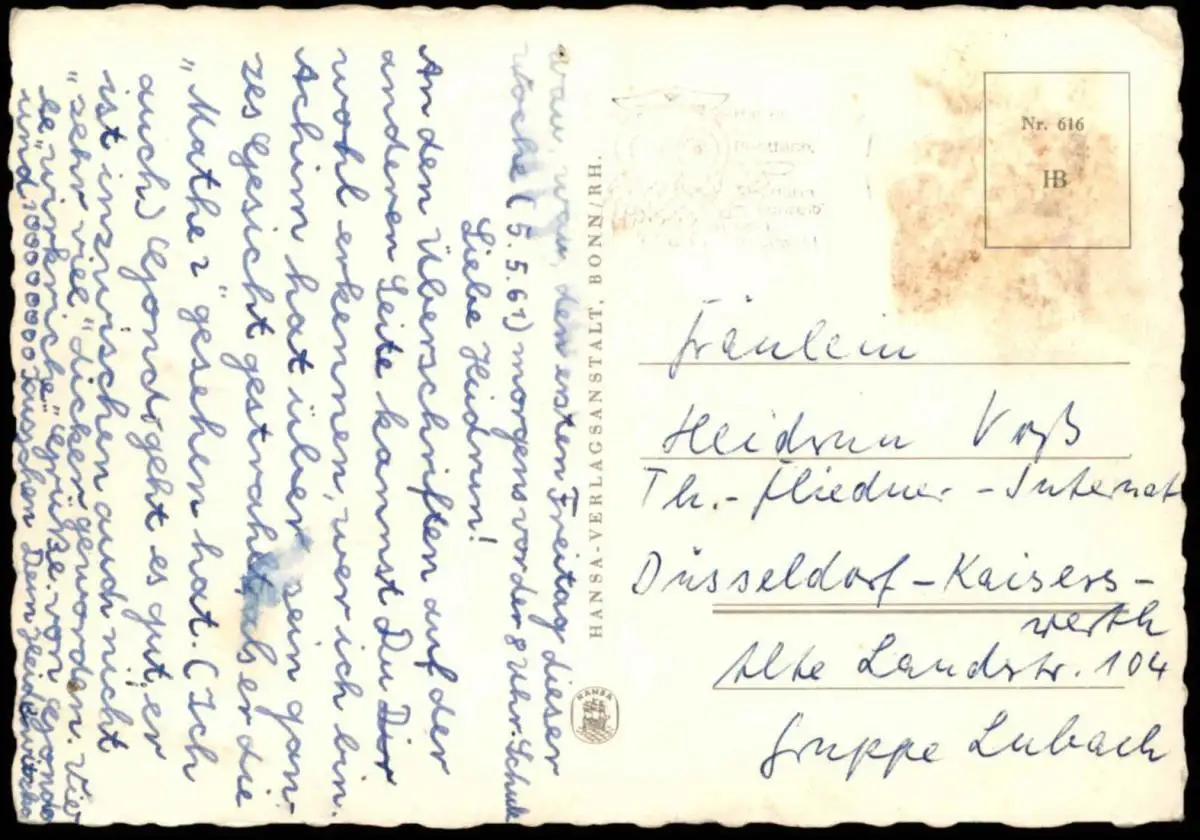 wau, wau, dem ersten Freitag dieser
Woche (5.5.61) morgens vor der 8 Uhr-Schule
Liebe Heidrun!
An den Überschriften auf der
anderen Seite kannst Du Dir
wohl erkennen, wer ich bin.
Achim hat über sein gan-
zes Gesicht gestrahlt, als er die
"Mathe 2" gesehen hat. (Ich
auch.) Gondo geht es gut, er
ist inzwischen auch nicht
"sehr viel" dicker geworden. Vie
le "wirkriche" Grüße. von Gondo
und 10000000000 Tauschen Dein
HANSA-VERLAGSANSTALT, BONN/RH.
HANSA
Nr. 616
HB
Fräulein
Heidrun Voß
Th.-Fliedner-Internat
Düsseldorf-Kaisers-
werth
Alte Landstr. 104
Gruppe Lubach